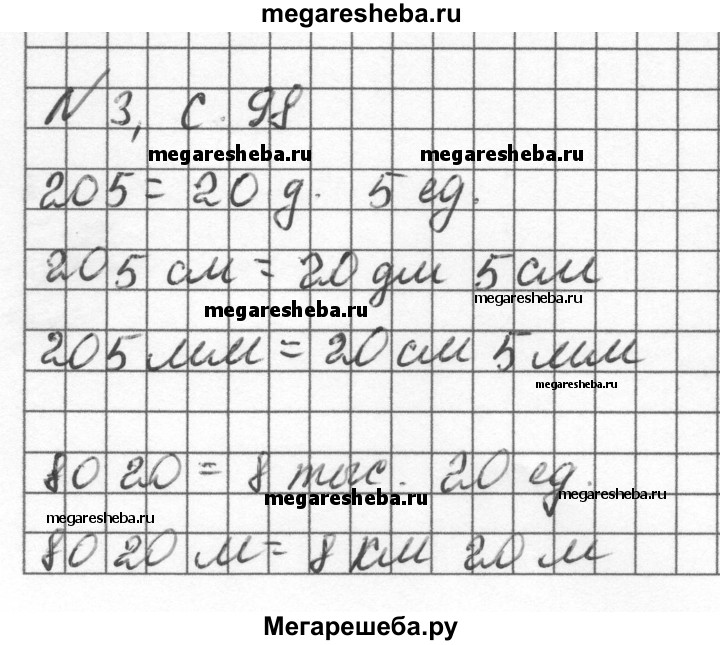 megaresheba.ru
№ 3, с. 98
megaresheba.ru megaresheba.ru
205 = 20 д. 5 ед.
205 см = 20 дм 5 см
megaresheba.ru
megaresheba.ru
205 мм = 20 см 5 мм
megaresheba.ru
8020 = 8 тыс. 20 ед.
megaresheba.ru megaresheba.ru
megaresheba.ru
8020 м = 8 км 20 м
Мегарешеба.ру